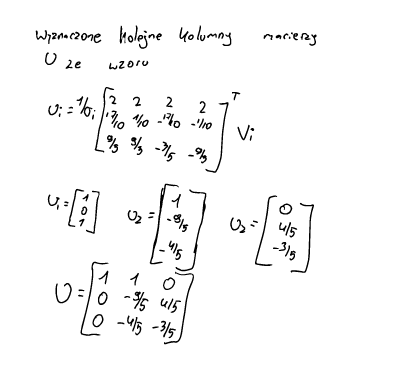 Wyznaczone kolejne kolumny macierzy
U ze wzoru
Ui = 1/σi [2 2 2 2
17/10 1/10 -17/10 -1/10
9/5 -3/5 ]^T Vi
U1 = [1 0 1] U2 = [1 -9/5 -4/5] U2 = [0 4/5 -3/5]
U = [1 1 0
0 -9/5 4/5
0 -4/5 -3/5]